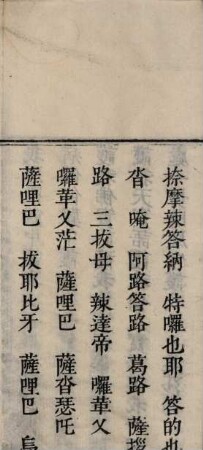 捺摩辣答納 特囉也耶 答的也
沓 唵 阿路答路 葛路 薩撥
路 三拔毋 辣達帝 囉葦义
囉葦义茫 薩哩巴 薩沓瑟吒
薩哩巴 拔耶比牙 薩哩巴 烏